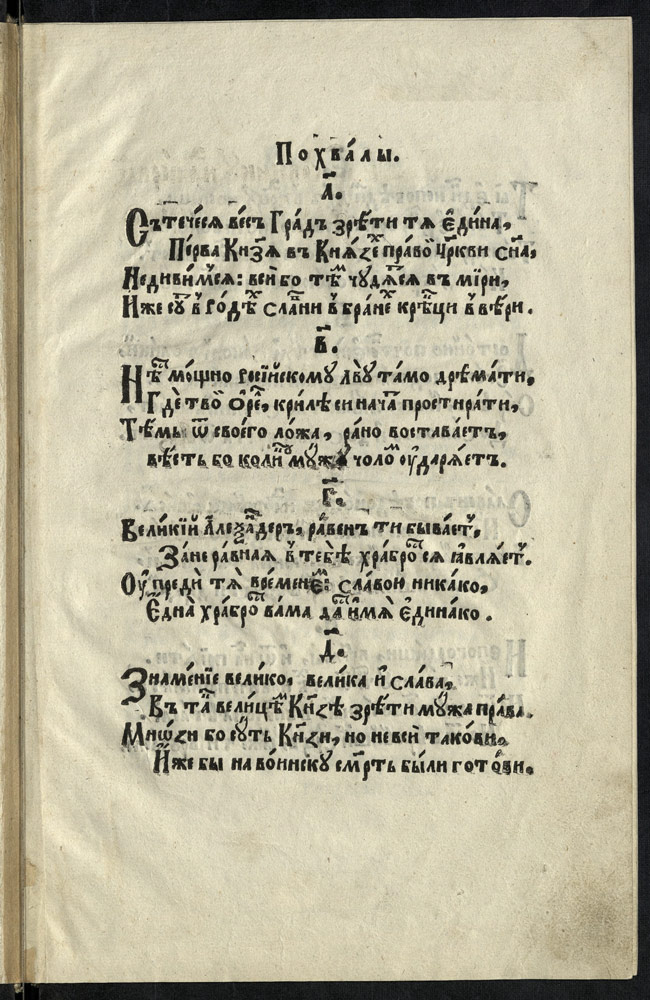 Похва́лы.
А҃.
Сътече́сѧ ве́съ Гра́дъ зрѣ́ти тѧ є҆ди́на,
Пе́рва Кнѧ́зѧ въ Кнѧ́ꙁеⷯ пра́воⷭ҇ Цр҃кви сн҃а,
Не диви́мⷭ҇ѧ: всѝ бо тѣ́ⷨ чудѧ́ⷮсѧ въ ми́рѣ,
И҆́же су́ⷮ в̾ ро́дѣⷯ сла́вни в̾ бра́неⷯ крѣ́пци в̾ вѣ́ри.
В҃.
Нѣ́ⷭ҇ мо́щно росі́йскому лвꙋ̀ та́мо дрѣма́ти,
Гдѐ тво́й Ѻ҆ре́ⷧ, кри́лѣ си нача́ⷮ простира́ти,
Тѣ́мъ ѿ своегѡ ло́жа, ра́но востава́етъ,
вѣ́сть бо коли́кⷪ му́жу чоло́ⷨ ѹ҆дарѧ́етъ.
Г҃.
Вели́кїй Алеѯа́ндеръ, ра́венъ ти быва́етⸯ,
За́не ра́внаѧ в̾ тебѣ̀ хра́броⷭ҇ сѧ ꙗ҆влѧ́етⸯ.
Ѹ҆преди́ тѧ̀ вре́менеⷨ: сла́вою ника́ко,
Є҆дна̀ хра́броⷭ҇ ва́ма да́ⷭ҇ и҆́мѧ є҆дина́ко.
Д҃.
Зна́менїе вели́ко, вели́ка и҆ сла́ва,
Въ та́ⷦ вели́цѣⷨ Кнѧ́ꙁѣ зрѣ́ти му́жа пра́ва.
Мнѡ́ꙁи бо су́ть Кнѧ́ꙁи, но не всѝ тако́ви,
И҆́же бы на во́инску сме́рть бы́ли гото́ви.